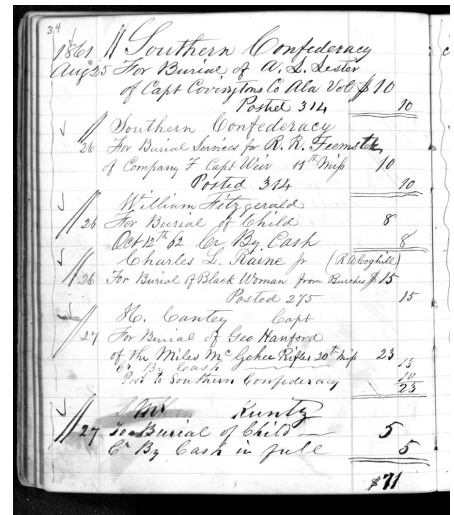 34
1861 // Southern Confederacy
Aug 25 For Burial of A. L. Lester
of Capt Covingtons Co Ala Vol $ 10
Posted 314 10
Southern Confederacy
26 For Burial Services for R. R. Feemster
of Company F Capt Weir 11th Miss 10
Posted 314 10
William Fitzgerald
26 For Burial of Child 8
Oct 12th 62 Cr By Cash 8
Charles L. Raine Jr (R A Coghill)
26 For Burial of Black Woman from Burches $ 15
Posted 275 15
H. Cantey Capt
27 For Burial of Geo Hanford
of the Miles McGehee Rifles 20th Miss 23
Cr By Cash 13
Post to Southern Confederacy 10
23
Mr Kuntz
27 To Burial of Child 5
Cr By Cash in full 5
$71